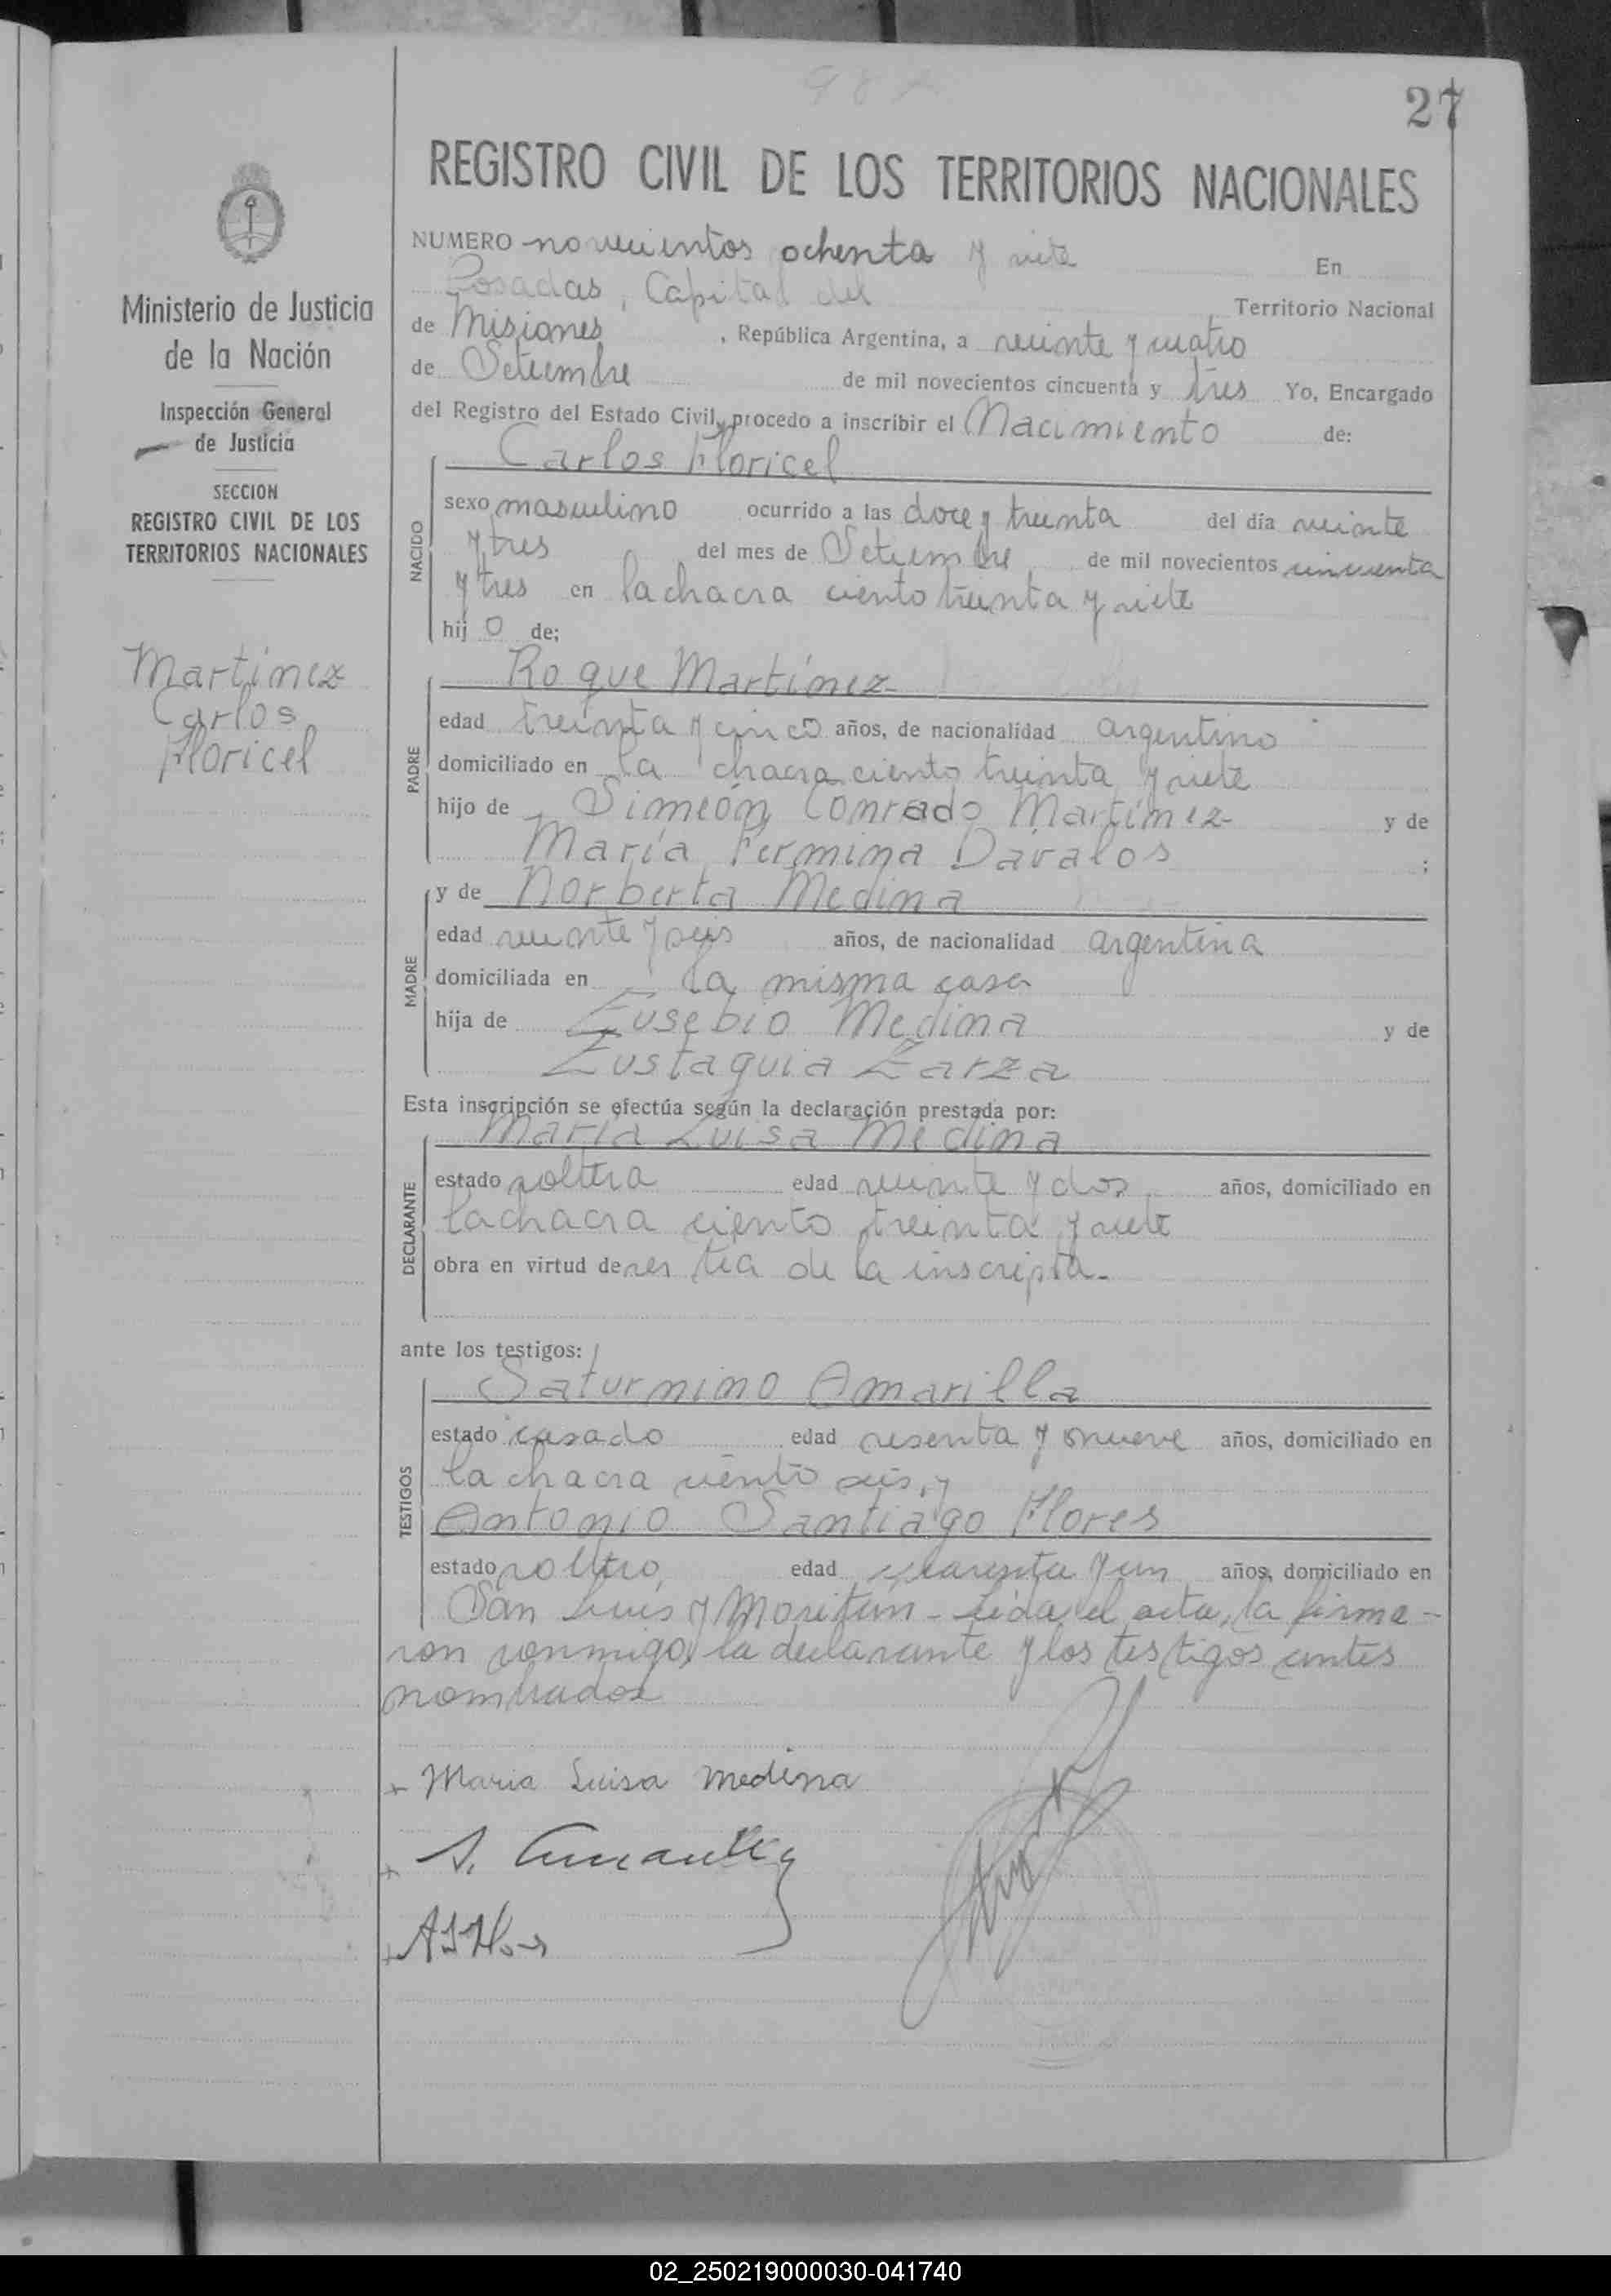 987
27
REGISTRO CIVIL DE LOS TERRITORIOS NACIONALES
NUMERO novecientos ochenta y siete En
Posadas, Capital del Territorio Nacional
de Misiones, República Argentina, a veinte y cuatro
de Setiembre de mil novecientos cincuenta y tres Yo, Encargado
del Registro del Estado Civil, procedo a inscribir el Nacimiento de:
Carlos Floricel
NACIDO
sexo masculino ocurrido a las doce y treinta del día veinte
y tres del mes de Setiembre de mil novecientos cincuenta
y tres en la chacra ciento treinta y siete
hij o de:
Roque Martínez
PADRE
edad treinta y cinco años, de nacionalidad argentino
domiciliado en la chacra ciento treinta y siete
hijo de Simeón Conrado Martínez y de
María Fermina Davalos ;
MADRE
y de Norberta Medina
edad veinte y seis años, de nacionalidad argentina
domiciliada en la misma casa
hija de Eusebio Medina y de
Eustaquia Zarza
Esta inscripción se efectúa según la declaración prestada por:
María Luisa Medina
DECLARANTE
estado soltera edad veinte y dos años, domiciliado en
la chacra ciento treinta y siete
obra en virtud de ser tia de la inscripta.
ante los testigos:
Saturnino Amarilla
TESTIGOS
estado casado edad sesenta y nueve años, domiciliado en
la chacra ciento seis, y
Antonio Santiago Flores
estado soltero, edad cuarenta y un años, domiciliado en
San Luis y Moritán - Leída el acta, la firma-
ron conmigo, la declarante y los testigos antes
nombrados
Maria Luisa Medina
S. Amarilla
Ministerio de Justicia
de la Nación
Inspección General
de Justicia
SECCION
REGISTRO CIVIL DE LOS
TERRITORIOS NACIONALES
Martínez
Carlos
Floricel
02_250219000030-041740